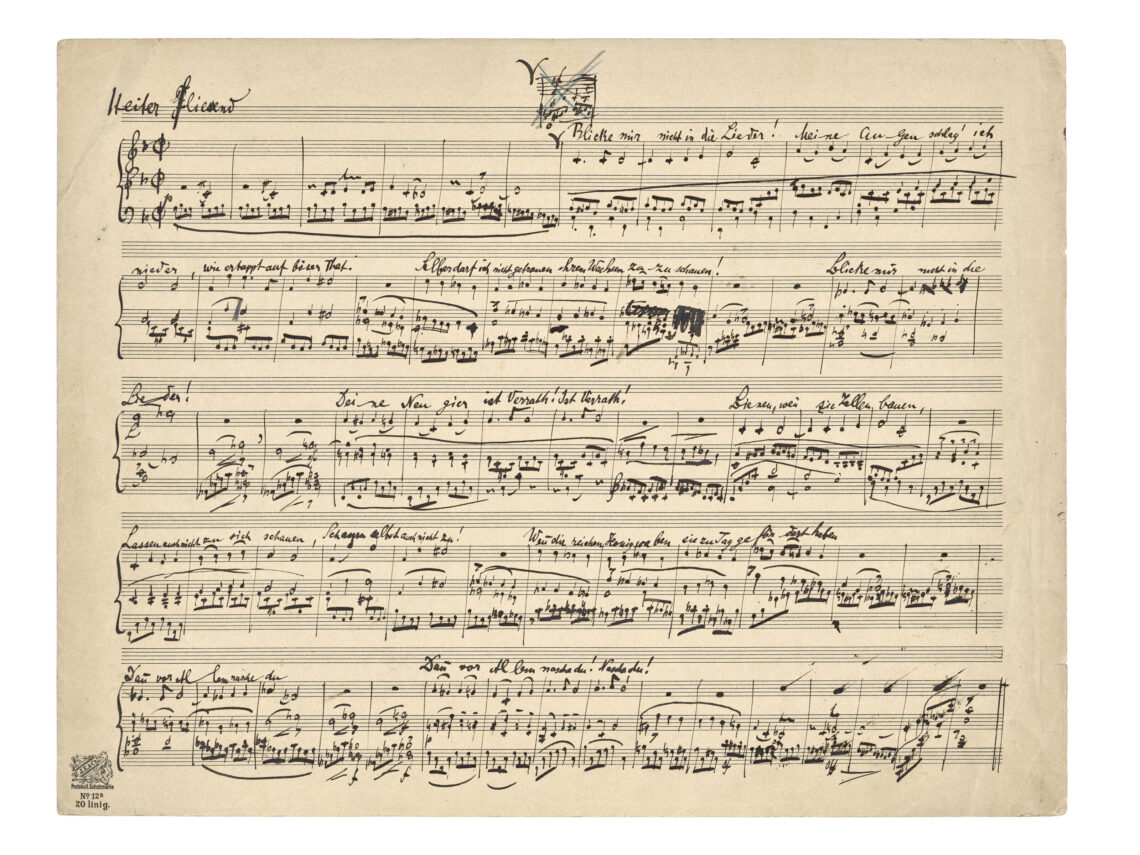 Heiter Fliessend
Blicke mir nicht in die Lieder! Meine Au-gen schlag' ich
nieder, wie ertappt auf böser That.
Selber darf ich nicht getrauen ihrem Wachsen zu-zuschauen!
Blicke mir nicht in die
Lieder!
Deine Neugier ist Verrath! Ist Verrath!
Bienen, wen sie Zellen bauen,
Lassen auch nicht zu sich schauen, Schauen selbst auch nicht zu!
Wen die reichen Honigwaben sie zu Tag gefördert haben
Dan vor Allem nasche du
Dan vor Allem nasche du! Nasche du!
Protokoll. Schutzmarke
No 12a
20 linig.